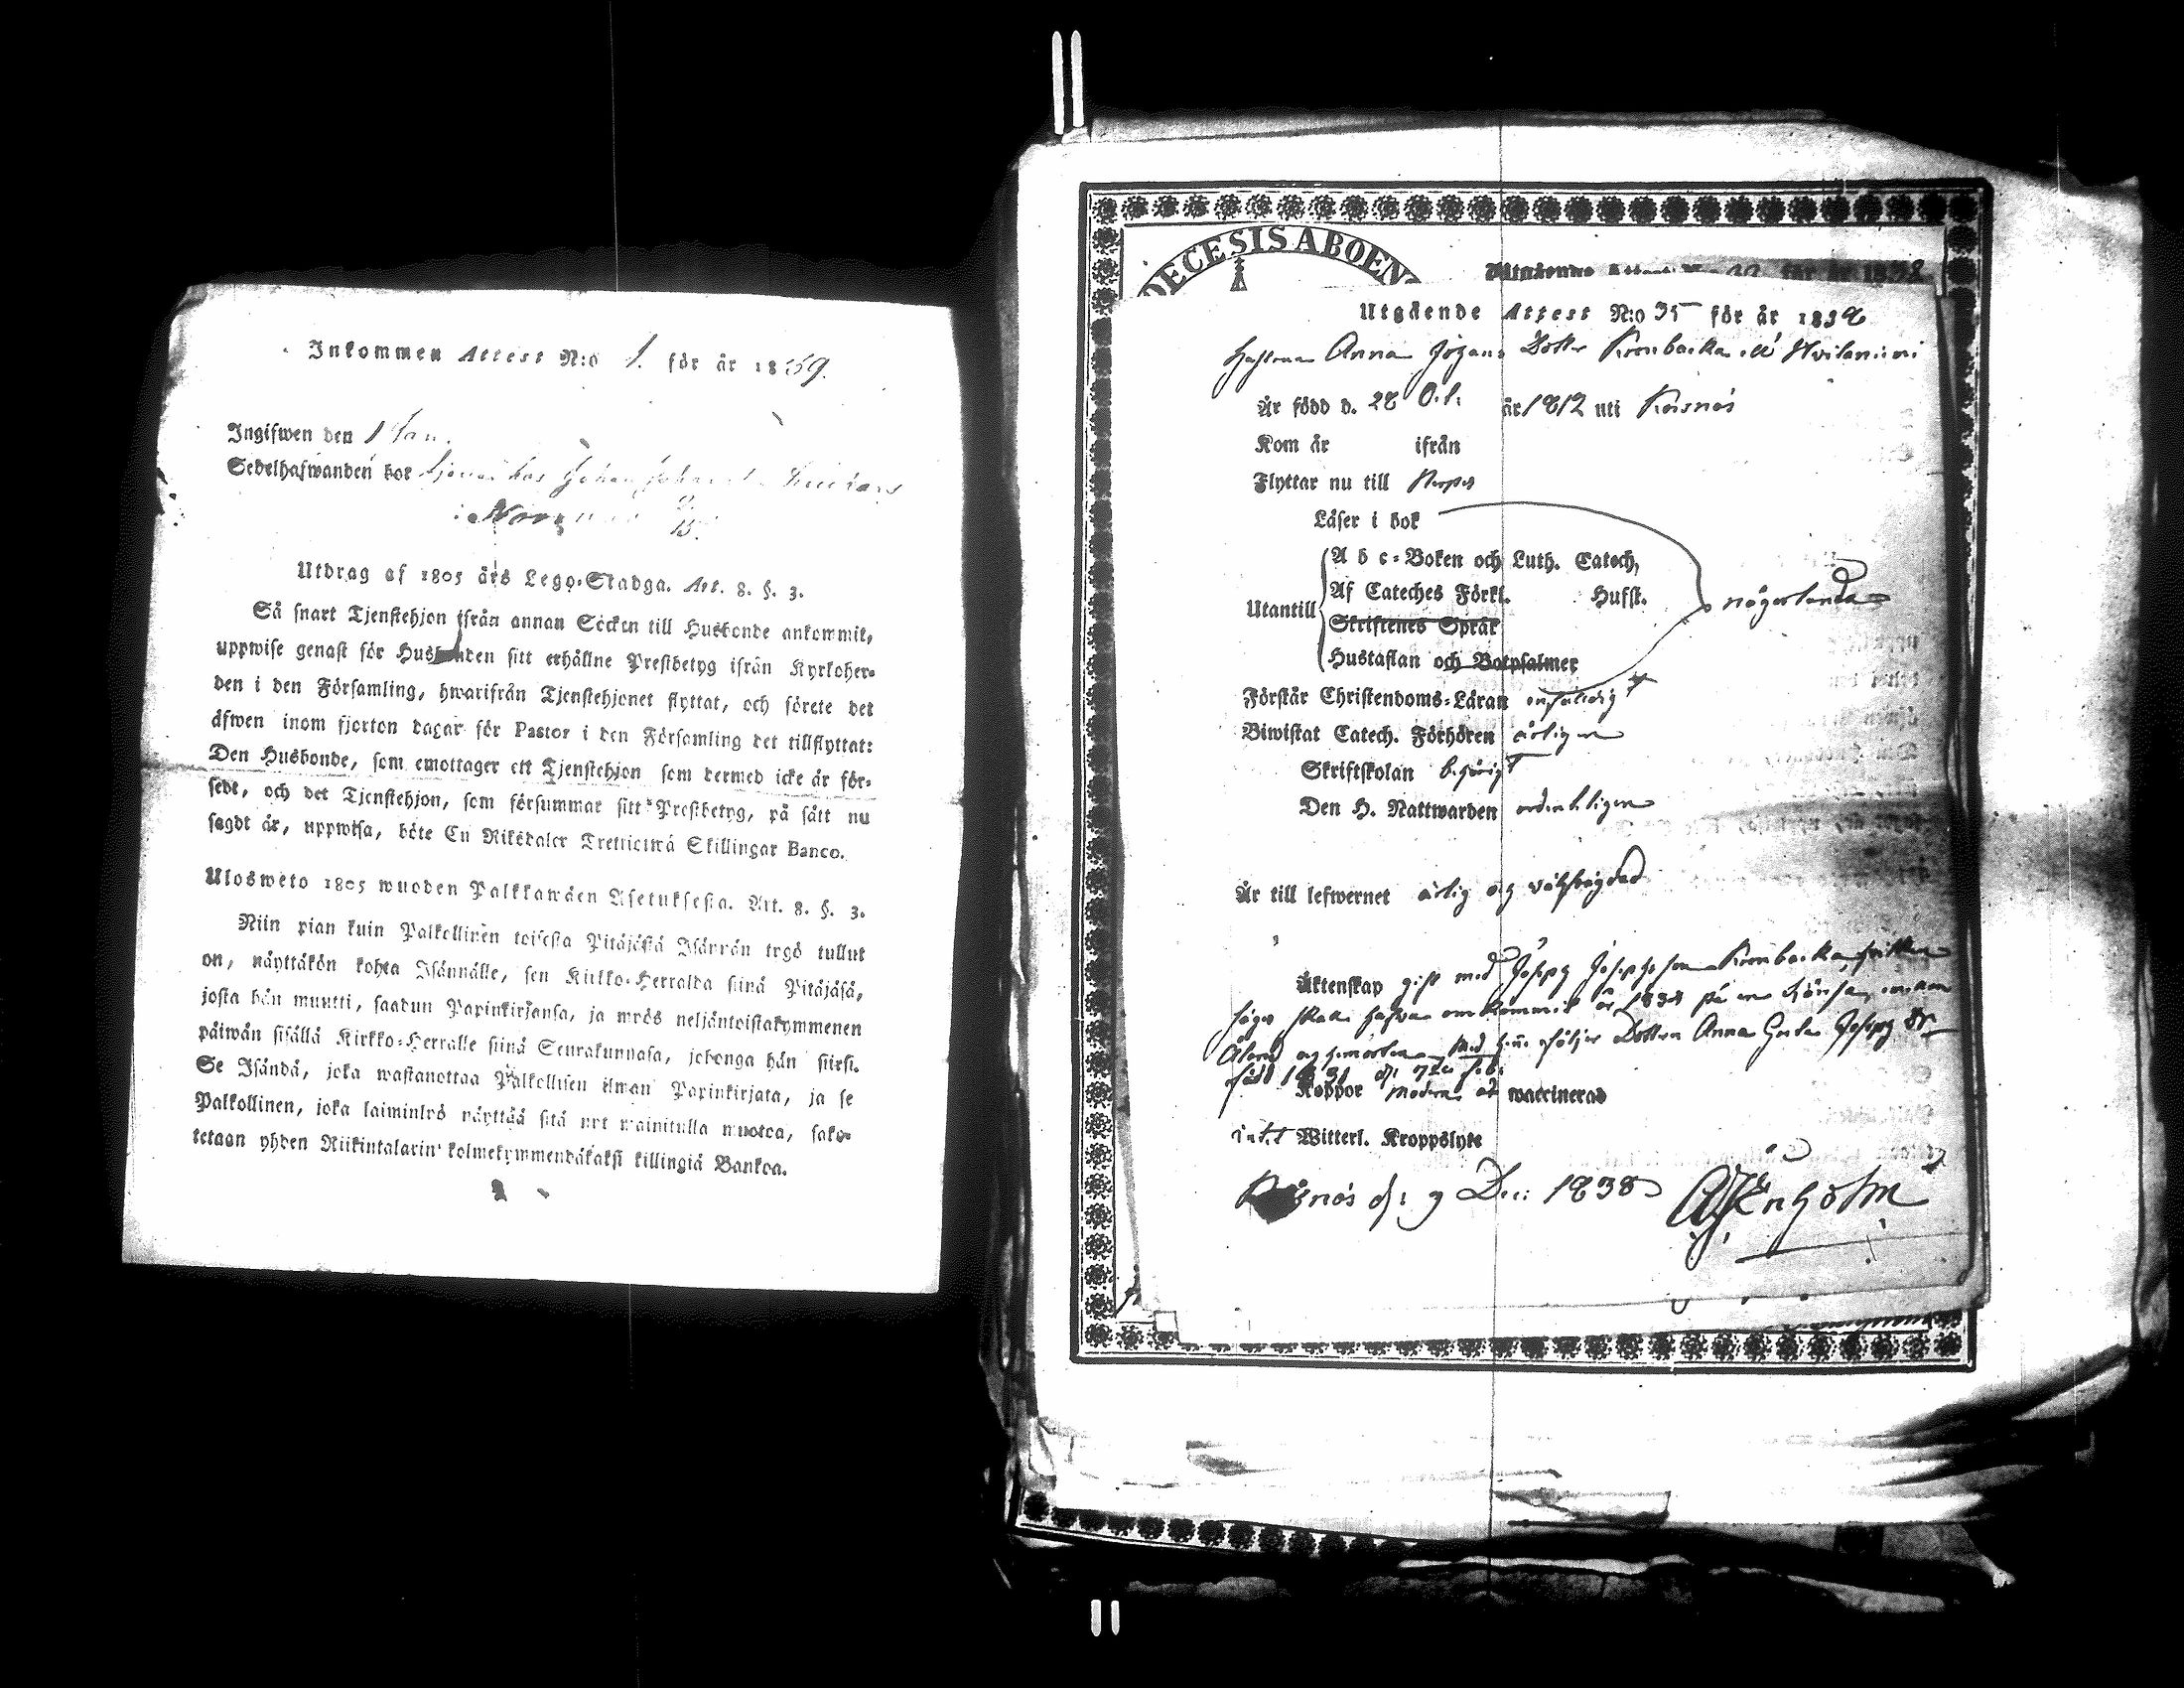 Inkommen Attest N:o 1. för år 1839.
Ingifwen den 1 Jan.
Sedelhafwanden bor hos Johan
Utdrag af 1805 års Lego-Stadga. Art. 8. §. 3.
Så snart Tjenstehjon ifrån annan Socken till Husbonde ankommit,
uppwise genast för Husbonden sitt erhållne Prestbetyg ifrån Kyrkoher-
den i den Församling, hwarifrån Tjenstehjonet flyttat, och förete det
äfwen inom fjorton dagar för Pastor i den Församling det tillflyttat:
Den Husbonde, som emottager ett Tjenstehjon som dermed icke är för-
sedt, och det Tjenstehjon, som försummar sitt Prestbetyg, på sätt nu
sagdt är, uppwisa, böte En Riksdaler Trettiotwå Skillingar Banco.
Ulosweto 1805 wuoden Palkkawäen Asetuksesta. Art. 8. §. 3.
Niin pian kuin Palkollinen toisesta Pitäjästä Isännän työ tullut
on, näyttäkön kohta Isännälle, sen Kirkko-Herralda siinä Pitäjäsä,
josta hän muutti, saadun Papinkirjansa, ja myös neljäntoistakymmenen
päiwän sisällä Kirkko-Herralle siinä Seurakunnasa, johonga hän siirsi.
Se Isändä, joka wastanottaa Palkollisen ilman Papinkirjata, ja se
Palkollinen, joka laiminlyö näyttää sitä nyt mainitulla muotoa, sako-
tetaan yhden Riikintalarin kolmekymmendäkaksi killingiä Bankoa.
DECESIS ABOEN
Utgående Attest N:o för år 1838
Utgående Attest N:o 35 för år 1838
Hustrun Anna Johans Dotter Kronbacka
Är född d. 28 Oct. år 1812 uti Korsnäs
Kom år ifrån
Flyttar nu till
Läser i bok
A b c-Boken och Luth. Catech,
Af Cateches Förkl. Hufst.
Utantill
Skriftenes Språk
Hustaflan och Botpsalmer
någorlunda
Förstår Christendoms-Läran enfaldigt
Biwistat Catech. Förhören årligen
Skriftskolan behörigt
Den H. Nattwarden ordentligen
Är till lefwernet ärlig och wälfrägdad
Äktenskap gift med Joseph Josephsson Kronbacka, hwilken
säges skola hafwa omkommit år 1838 på en
Åland och Med henne följer Dottren Anna Greta Joseph Dr
född
Koppor Modren är waccinerad
intet Witterl. Kroppslyte
Korsnäs d: 9 Dec: 1838